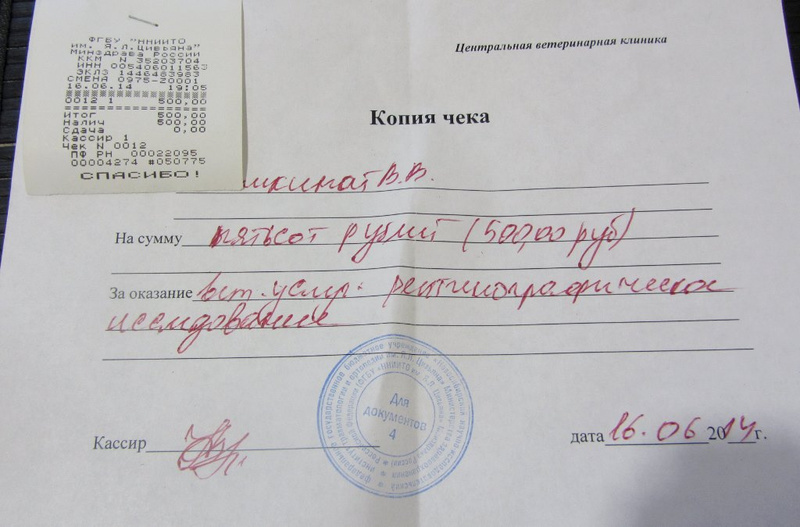 ФГБУ "ННИИТО
ИМ. Я.Л.ЦИВЬЯНА"
МИНЗДРАВА РОССИИ
ККМ N 35203704
ИНН 005406011563
ЭКЛЗ 1446483983
СМЕНА 0975-20001
16.06.14 19:05
0012 1 500,00
ИТОГ 500,00
НАЛИЧ 500,00
СДАЧА 0,00
КАССИР 1
ЧЕК N 0012
ПФ РН 00022095
00004274 #050775
СПАСИБО!
Центральная ветеринарная клиника
Копия чека
В.В.
На сумму пятьсот рублей (500,00 руб)
За оказание вет. услуг. рентгенографическое
исследование
Для
документов
4
Кассир
дата 16.06 2014г.